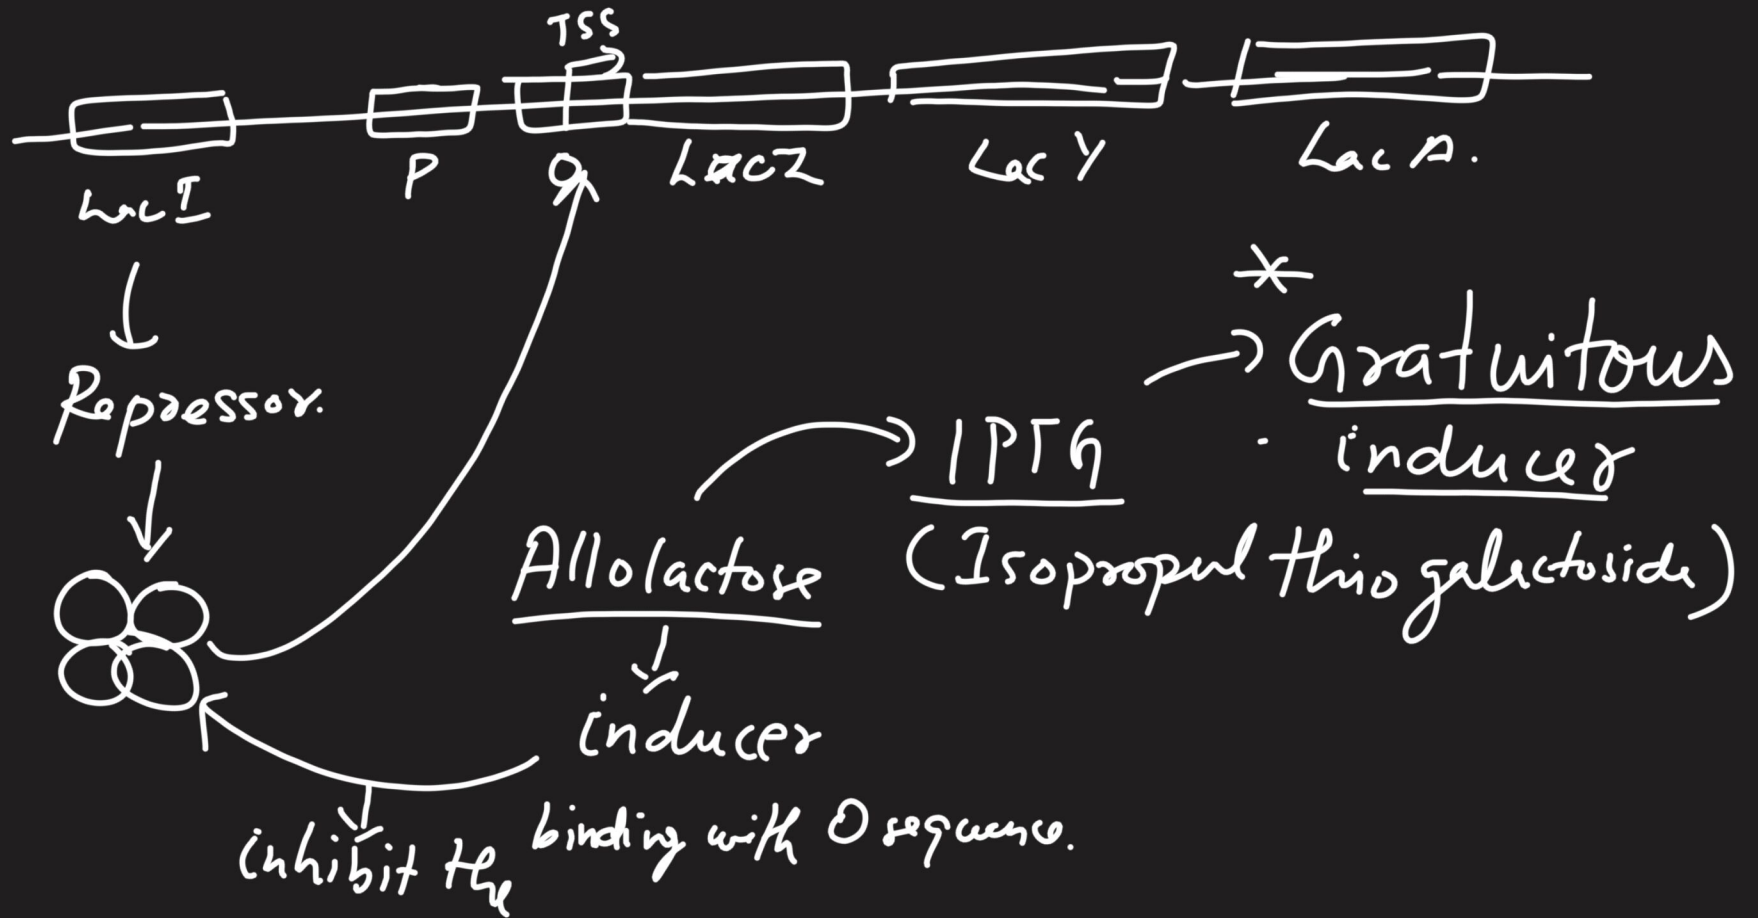 TSS
LacI
P
O
LacZ
Lac Y
Lac A.
Repressor.
*
Gratuitous
inducer
IPTG
(Isopropyl thio galactoside)
Allolactose
inducer
inhibit the binding with O sequence.